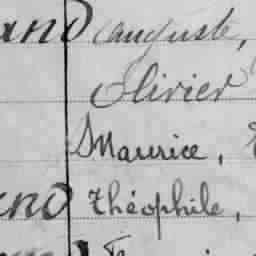 and Auguste,
Olivier
Maurice,
and Théophile,